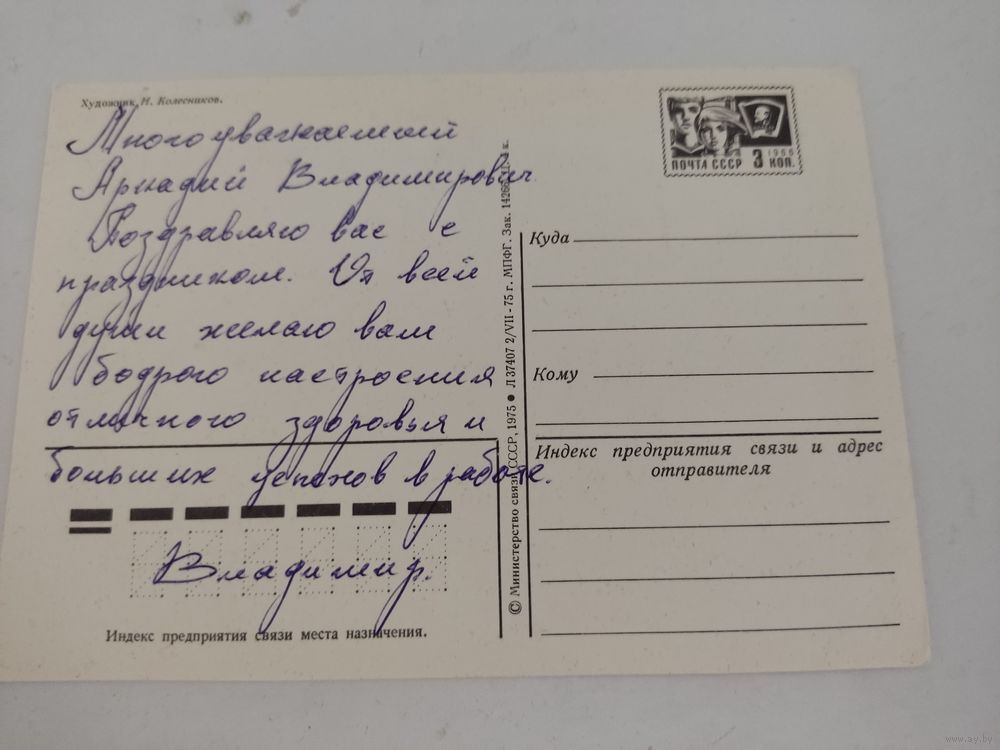 Художник Н. Колесников.
Многоуважаемый
Аркадий Владимирович
Поздравляю вас с
праздником. От всей
души желаю вам
бодрого настроения
отличного здоровья и
больших успехов в работе.
Владимир.
Индекс предприятия связи места назначения.
© Министерство связи СССР, 1975 ● Л 37407 2/VII - 75 г. МПФГ. Зак. к.
1966
ПОЧТА СССР 3 КОП.
Куда
Кому
Индекс предприятия связи и адрес
отправителя
www.ay.by